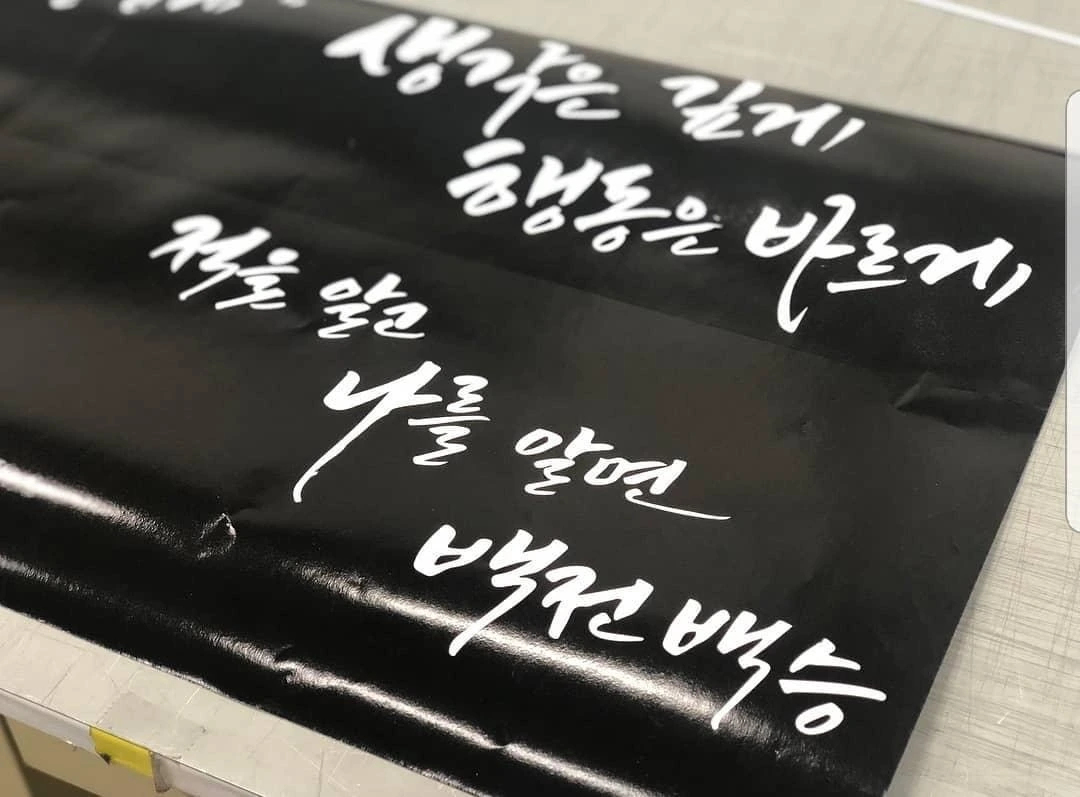 생각은 깊게
행동은 바르게
적을 알고
나를 알면
백전백승